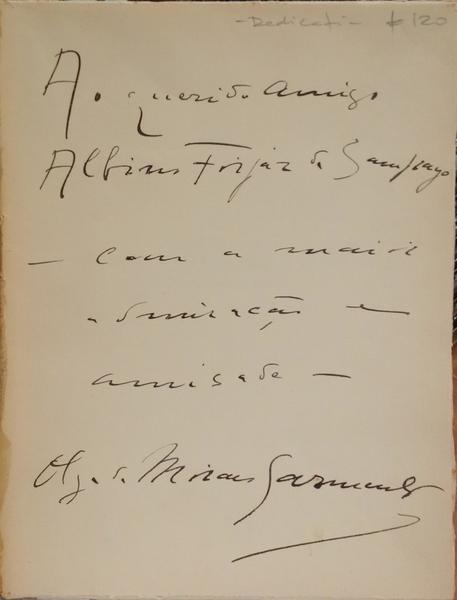 - Dedicati - $120
Ao querido amigo
Albino Forjaz de Sampayo
— com a maior
admiração e
amisade —
Olga de Moraes Sarmento